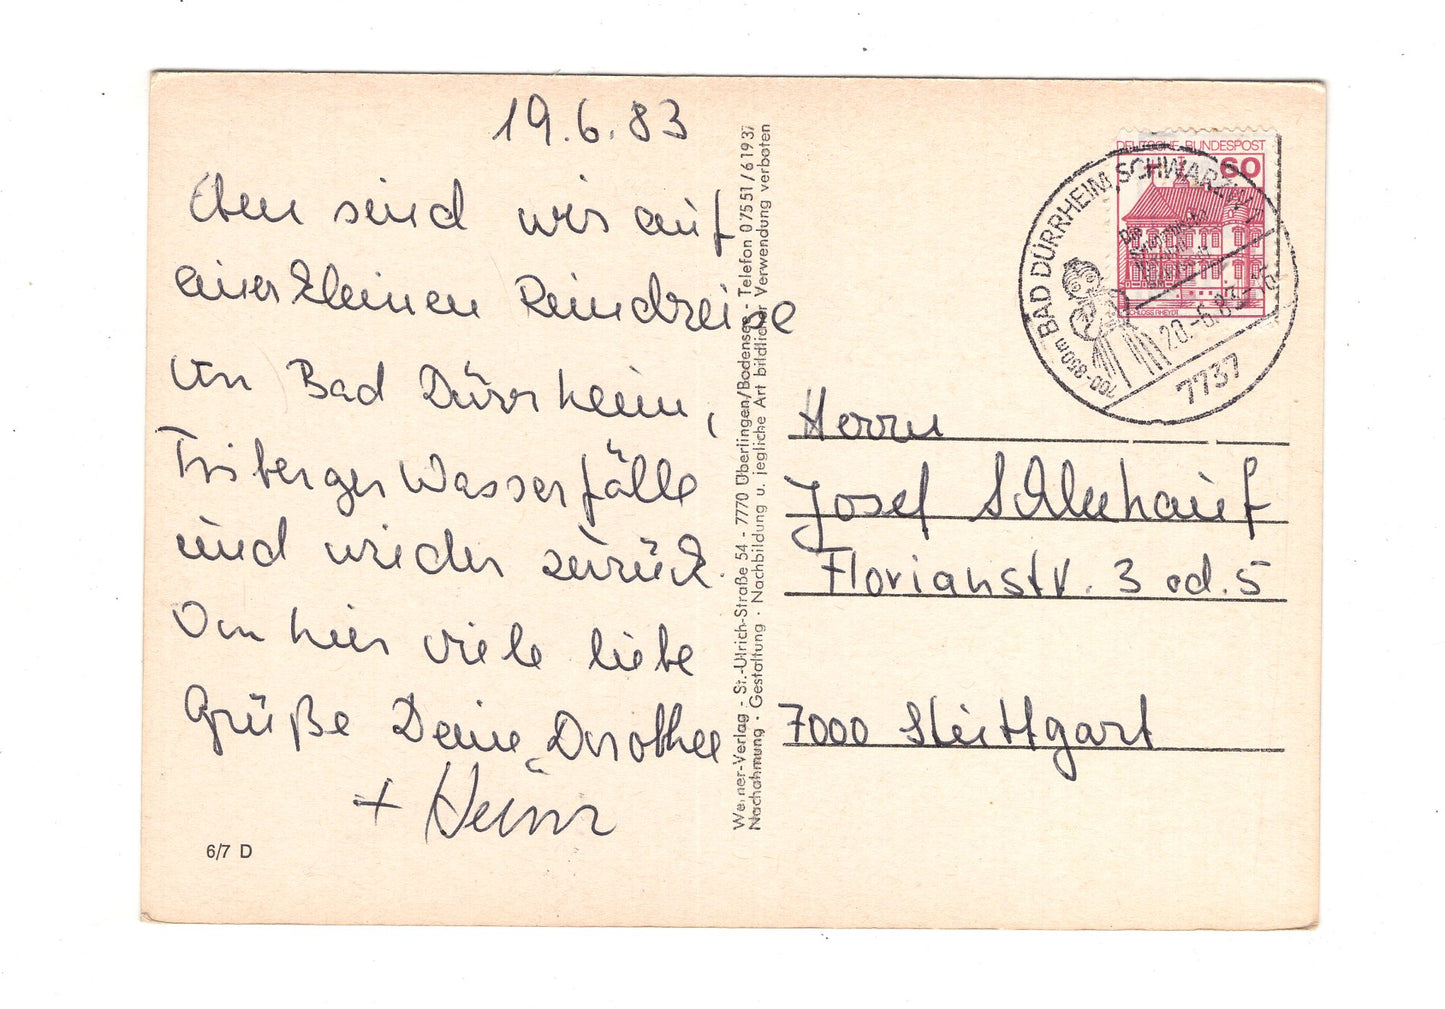 19.6.83
Eben sind wir auf
einer kleinen Rundreise
von Bad Dürrheim,
Triberger Wasserfälle
und wieder zurück.
Von hier viele liebe
Grüße Deine Dorothee
+ Heinz
6/7 D
Werner-Verlag - St.-Ulrich-Straße 54 - 7770 Überlingen/Bodensee - Telefon 07551/61937
Nachahmung · Gestaltung · Nachbildung u. jegliche Art bildlicher Verwendung verboten
DEUTSCHE BUNDESPOST
60
SCHLOSS RHEYDT
BAD DÜRRHEIM, SCHWARZW.
700-850m
20.-6.83-16
7737
Herrn
Josef Schleehauf
Florianstr. 3 od. 5
7000 Stuttgart